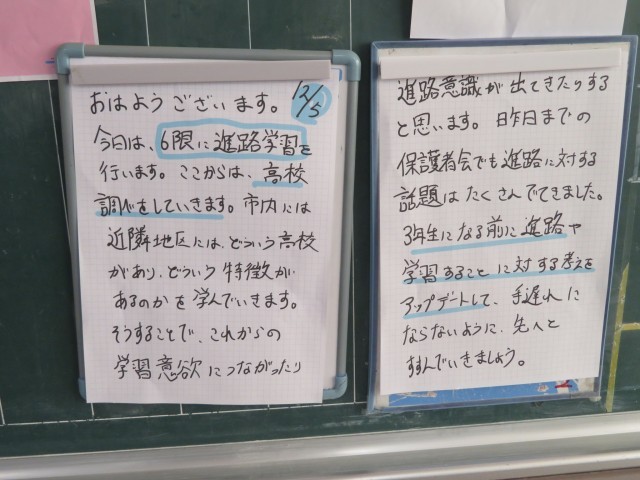 おはようございます。 12/5
今日は、6限に進路学習を
行います。ここからは、高校
調べをしていきます。市内には
近隣地区には、どういう高校
があり、どういう特徴が
あるのかを学んでいきます。
そうすることで、これからの
学習意欲につながったり
進路意識が出てきたりする
と思います。昨日までの
保護者会でも進路に対する
話題はたくさんでてきました。
3年生になる前に進路や
学習することに対する考えを
アップデートして、手遅れに
ならないように、先へと
すすんでいきましょう。